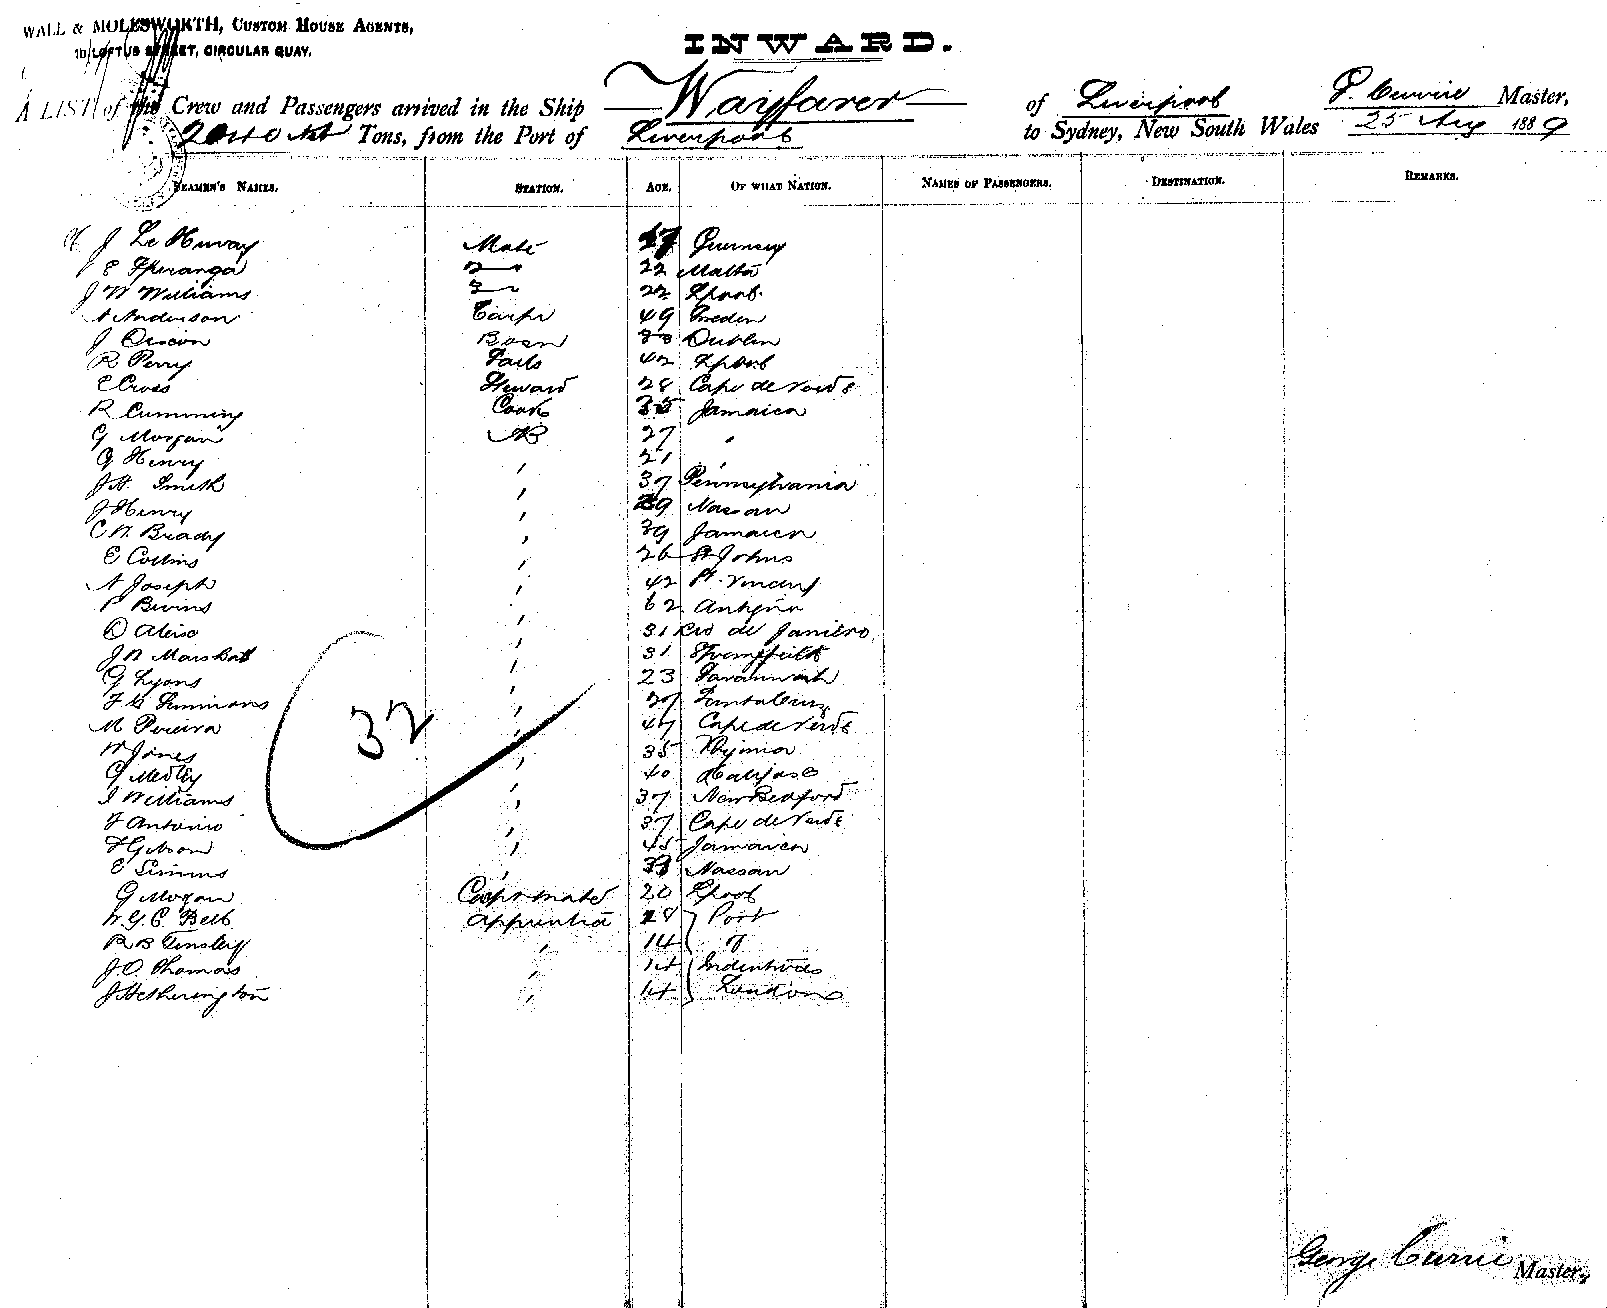 WALL & MOLESWORTH, CUSTOM HOUSE AGENTS,
10 LOFTUS STREET, CIRCULAR QUAY.
INWARD.
A LIST of the Crew and Passengers arrived in the Ship Wayfarer of Liverpool Currie Master,
Tons, from the Port of Liverpool to Sydney, New South Wales 25 Aug 1889
SEAMEN'S NAMES. STATION. AGE. OF WHAT NATION. NAMES OF PASSENGERS. DESTINATION. REMARKS.
J Le Huray Mate 47 Guernsey
E Speranga 2 " 22 Malta
J W Williams 3 " 22 Lpool
A Anderson Carpr 49 Sweden
J Dublin
R Perry Sails 42 Lpool
E Cross Steward 28 Cape de Verde
R Cumming Cook 35 Jamaica
G Morgan AB 27 "
G Henry " 21 "
J H Smith " 37 Pennsylvania
J Henry " 29 Nassau
C N Brady " 39 Jamaica
E Collins " 26 St Johns
A Joseph " 42 St. Vincent
P Bivins " 62 Antigua
D " 31 Rio de Janiero
J N Marshall " 31
G Lyons " 23 Savannah
F G Simmons "
M Pereira " 47 Cape de Verde
W Jones " 35
G Medley " 40 Halifax
I Williams " 37 New Bedford
F Antonio " 37 Cape de Verde
F Gibson " 45 Jamaica
E Simms " Nassau
32
G Mogan 20 Lpool
W. G. C. Bell Apprentice 18 Port
R B Tinsley " 14 of
J O. Thomas " 14 Indentures
J Hetherington " 14 London
George Currie Master,